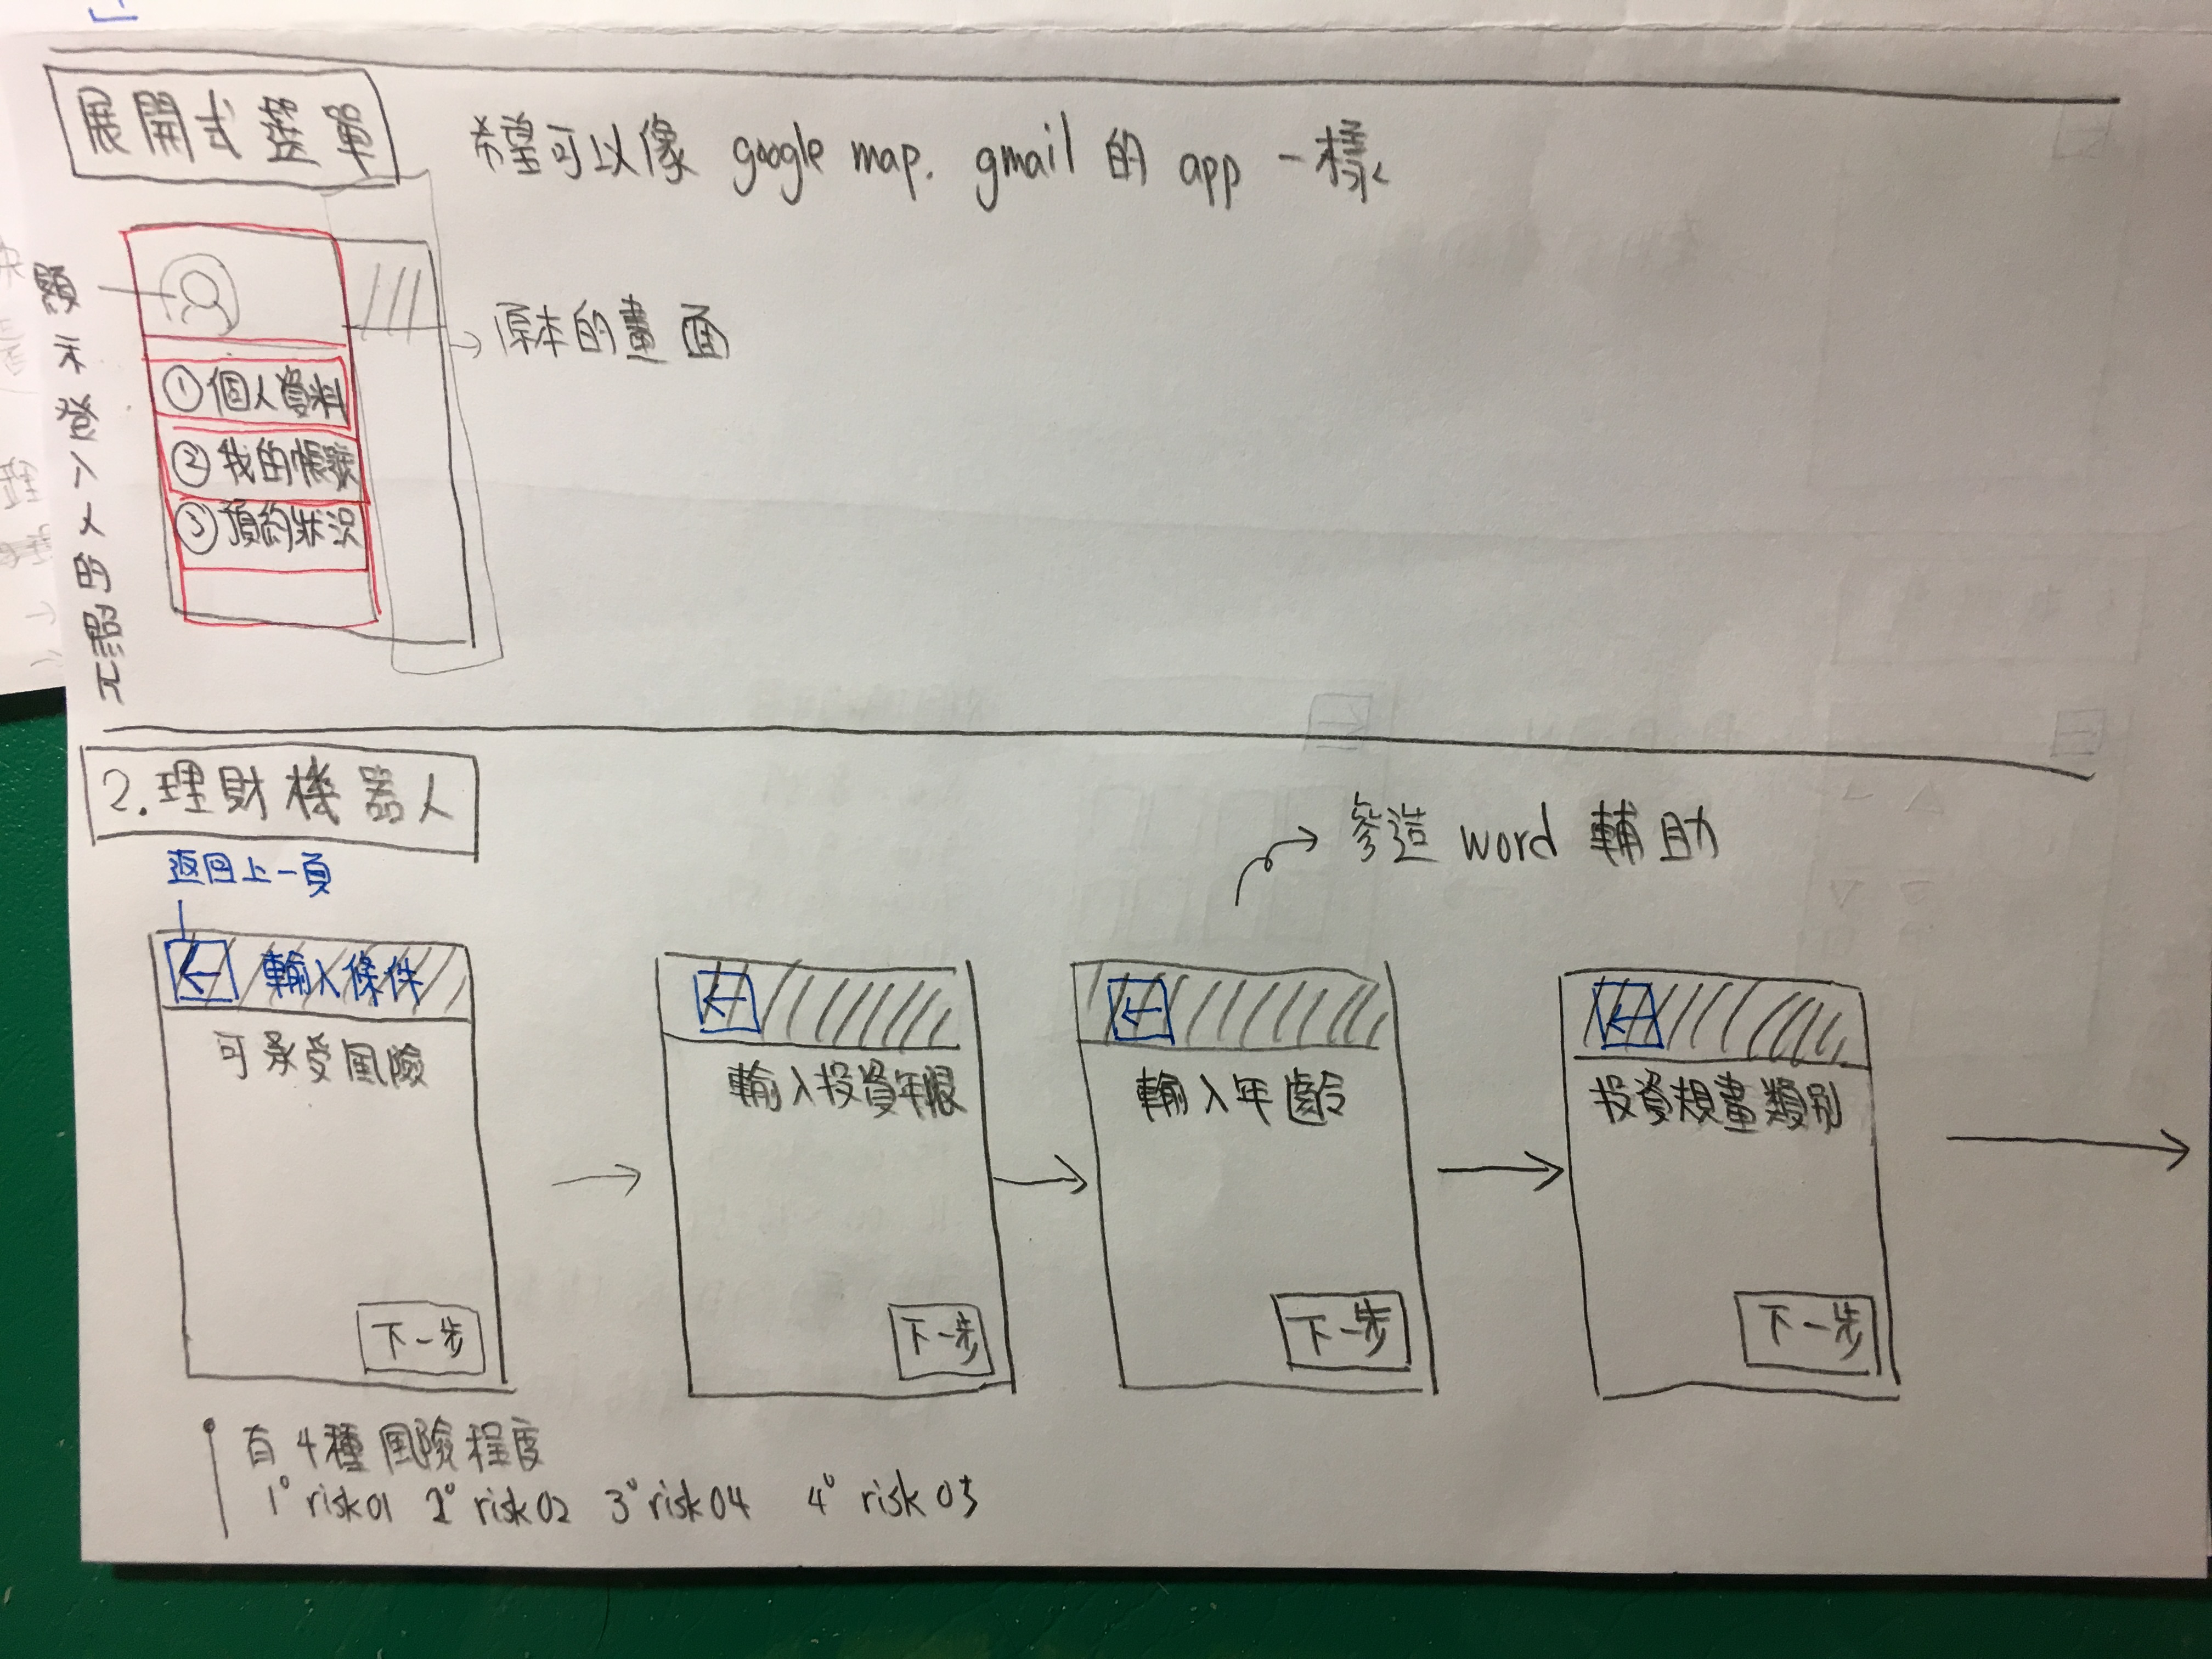 展開式選單
希望可以像 google map. gmail 的 app 一樣
顯示登入人的照片
原本的畫面
①個人資料
②我的帳號
③預約狀況
2.理財機器人
參造 word 輔助
返回上一頁
← 輸入條件
可承受風險
下一步
←
輸入投資年限
下一步
←
輸入年齡
下一步
←
投資規畫類別
下一步
有4種風險程度
1° risk01 2° risk02 3° risk04 4° risk05